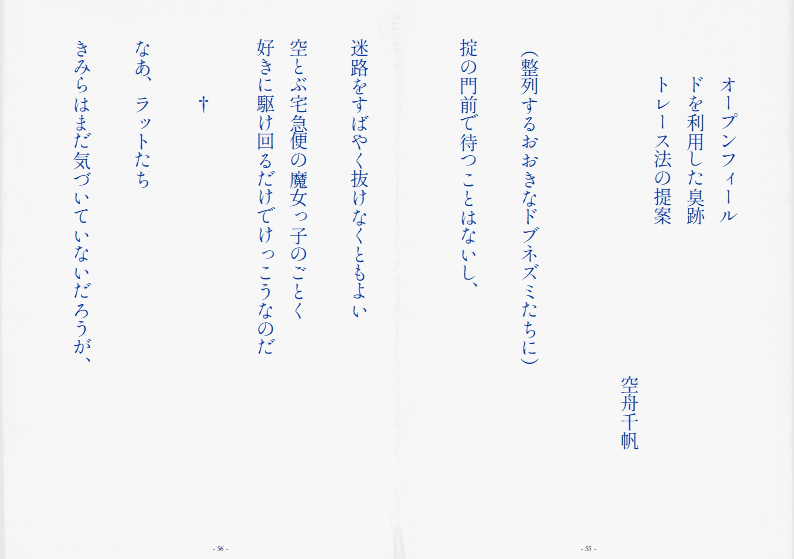 オープンフィール
ドを利用した臭跡
トレース法の提案
空舟千帆
（整列するおおきなドブネズミたちに）
掟の門前で待つことはないし、
- 55 -
迷路をすばやく抜けなくともよい
空とぶ宅急便の魔女っ子のごとく
好きに駆け回るだけでけっこうなのだ
†
なあ、ラットたち
きみらはまだ気づいていないだろうが、
- 56 -